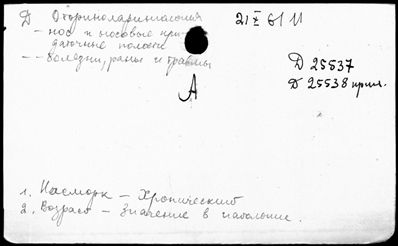 Д Оториноларингология
- нос и носовые при-
даточные полости
-- болезни, раны и травмы
21 X 61 М
Д 25537
Д 25538 прил.
А
1. Насморк – Хронический
2. Возраст – Значение в патологии.